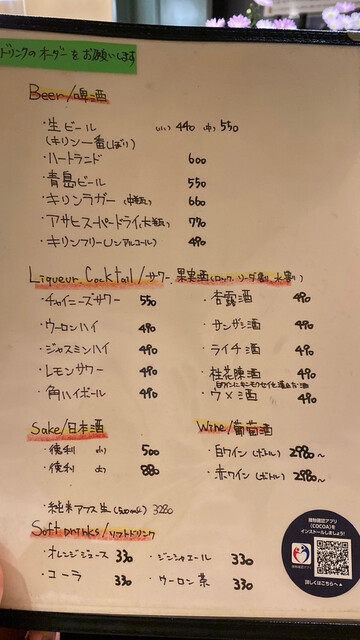 ドリンクのオーダーをお願いします
Beer/啤酒
・生ビール (小) 440 (中) 550
(キリン一番しぼり)
・ハートランド 600
・青島ビール 550
・キリンラガー (中瓶) 660
・アサヒスーパードライ(大瓶) 770
・キリンフリー(ノンアルコール) 490
Liqueur Cocktail/サワー 果実酒(ロック、ソーダ割り、水割り)
・チャイニーズサワー 550
・ウーロンハイ 490
・ジャスミンハイ 490
・レモンサワー 490
・角ハイボール 490
・杏露酒 490
・サンザシ酒 490
・ライチ酒 490
・桂花陳酒 490
白ワインにキンモクセイを漬けたお酒
・ウメ酒 490
Sake/日本酒
・徳利 小) 500
・徳利 大) 880
・純米アフス生 (500ml) 3280
Wine/葡萄酒
・白ワイン (ボトル) 2980~
・赤ワイン (ボトル) 2980~
Soft drinks/ソフトドリンク
・オレンジジュース 330
・コーラ 330
・ジンジャエール 330
・ウーロン茶 330
接触確認アプリ
(COCOA)を
インストールしましょう!
接触確認アプリ
詳しくはこちらへ▲